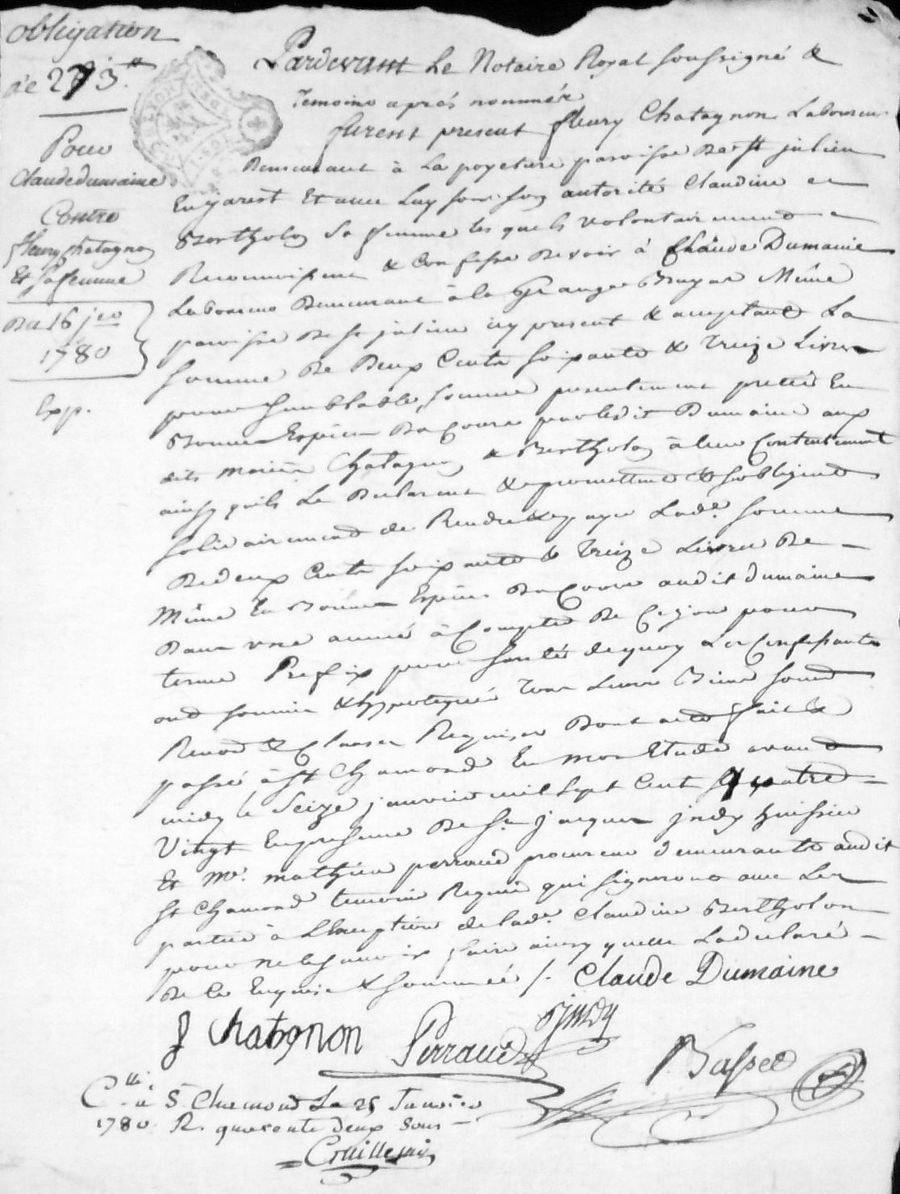 obligation
de 273ᵗᵗ
Pour
Claude dumaine
Contre
fleury chatagnon
Et sa femme
Du 16 jer
1780
Exp.
Pardevant Le Notaire Royal soussigné &
temoins aprés nommés
furent present fleury Chatagnon Laboureur
Demeurant à La poyeture paroisse De st julien
En jarest Et avec Luy sous son autorité Claudine
Bertholon Sa femme les quels volontairement
Reconnoissent & Confesse Devoir à Claude Dumaine
Laboureur Demeurant à la Grange Même
paroisse De st julien icy present & acceptant La
somme De Deux Cents soixante & Treize Livres
pour semblable somme presentement pretté En
Bonnes Espèces De Cours par ledit Dumaine aux
dits mariés Chatagnon & Bertholon à leur Contentement
ainsy qu'ils Le Declarent & promettent & s'obligent
solidairement de Rendre & payer Lade somme
De deux Cents soixante & Treize Livres De
Même En Bonnes Espèces De Cours audit dumaine
Dans une année à Compter De Ce jour pour
terme Prefix pour sureté de quoy Les Confessants
ont soumis & hypotequé Tous Leurs Biens
Renond & Clauses Requises Dont acte fait &
passé à st Chamond En mon Etude avant
midy le Seize janvier mil sept Cent quatre
Vingt En presence De sr jacques jndy huissier
Et Me. mathieu perraud procureur demeurants audit
st Chamond temoins Requis qui signeront avec Les
parties à L'Exception de lade Claudine Bertholon
pour ne le sçavoir faire ainsy quelle La declaré
De Ce Enquise & sommée /. Claude Dumaine
f chatagnon Perraud jndy
Basset
Clle à St Chamond Le 25 Janvier
1780. R. quarente deux sous